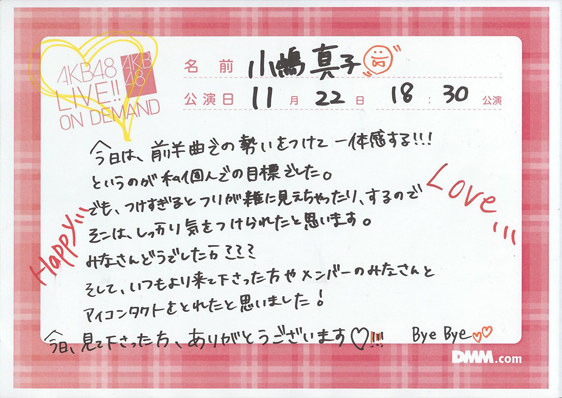 AKB48
LIVE!!
ON DEMAND
AKB
48
名前 小嶋真子
公演日 11月 22日 18:30公演
今日は、前半曲での勢いをつけて一体感する!!!
というのが私個人での目標でした。
でも、つけすぎるとフリが雑に見えちゃったり、するので
そこは、しっかり気をつけられたと思います。
みなさんどうでしたか???
そして、いつもより来て下さった方やメンバーのみなさんと
アイコンタクトをとれたと思いました!
今日、見て下さった方、ありがとうございます♡!!!
Happy
Love
Bye Bye♡♡
DMM.com